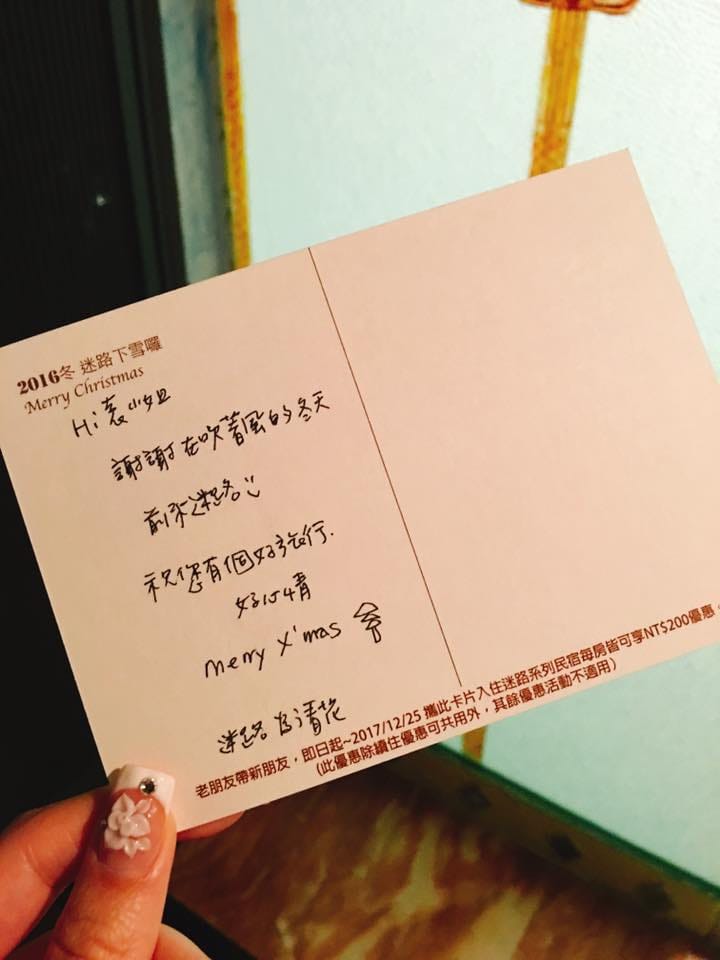 2016冬 迷路下雪囉
Merry Christmas
Hi 袁小姐
謝謝在吹著風的冬天
前來迷路
祝您有個好旅行.
好心情
merry X'mas
迷路
老朋友帶新朋友，即日起~2017/12/25 攜此卡片入住迷路系列民宿每房皆可享NT$200優惠
(此優惠除續住優惠可共用外，其餘優惠活動不適用)